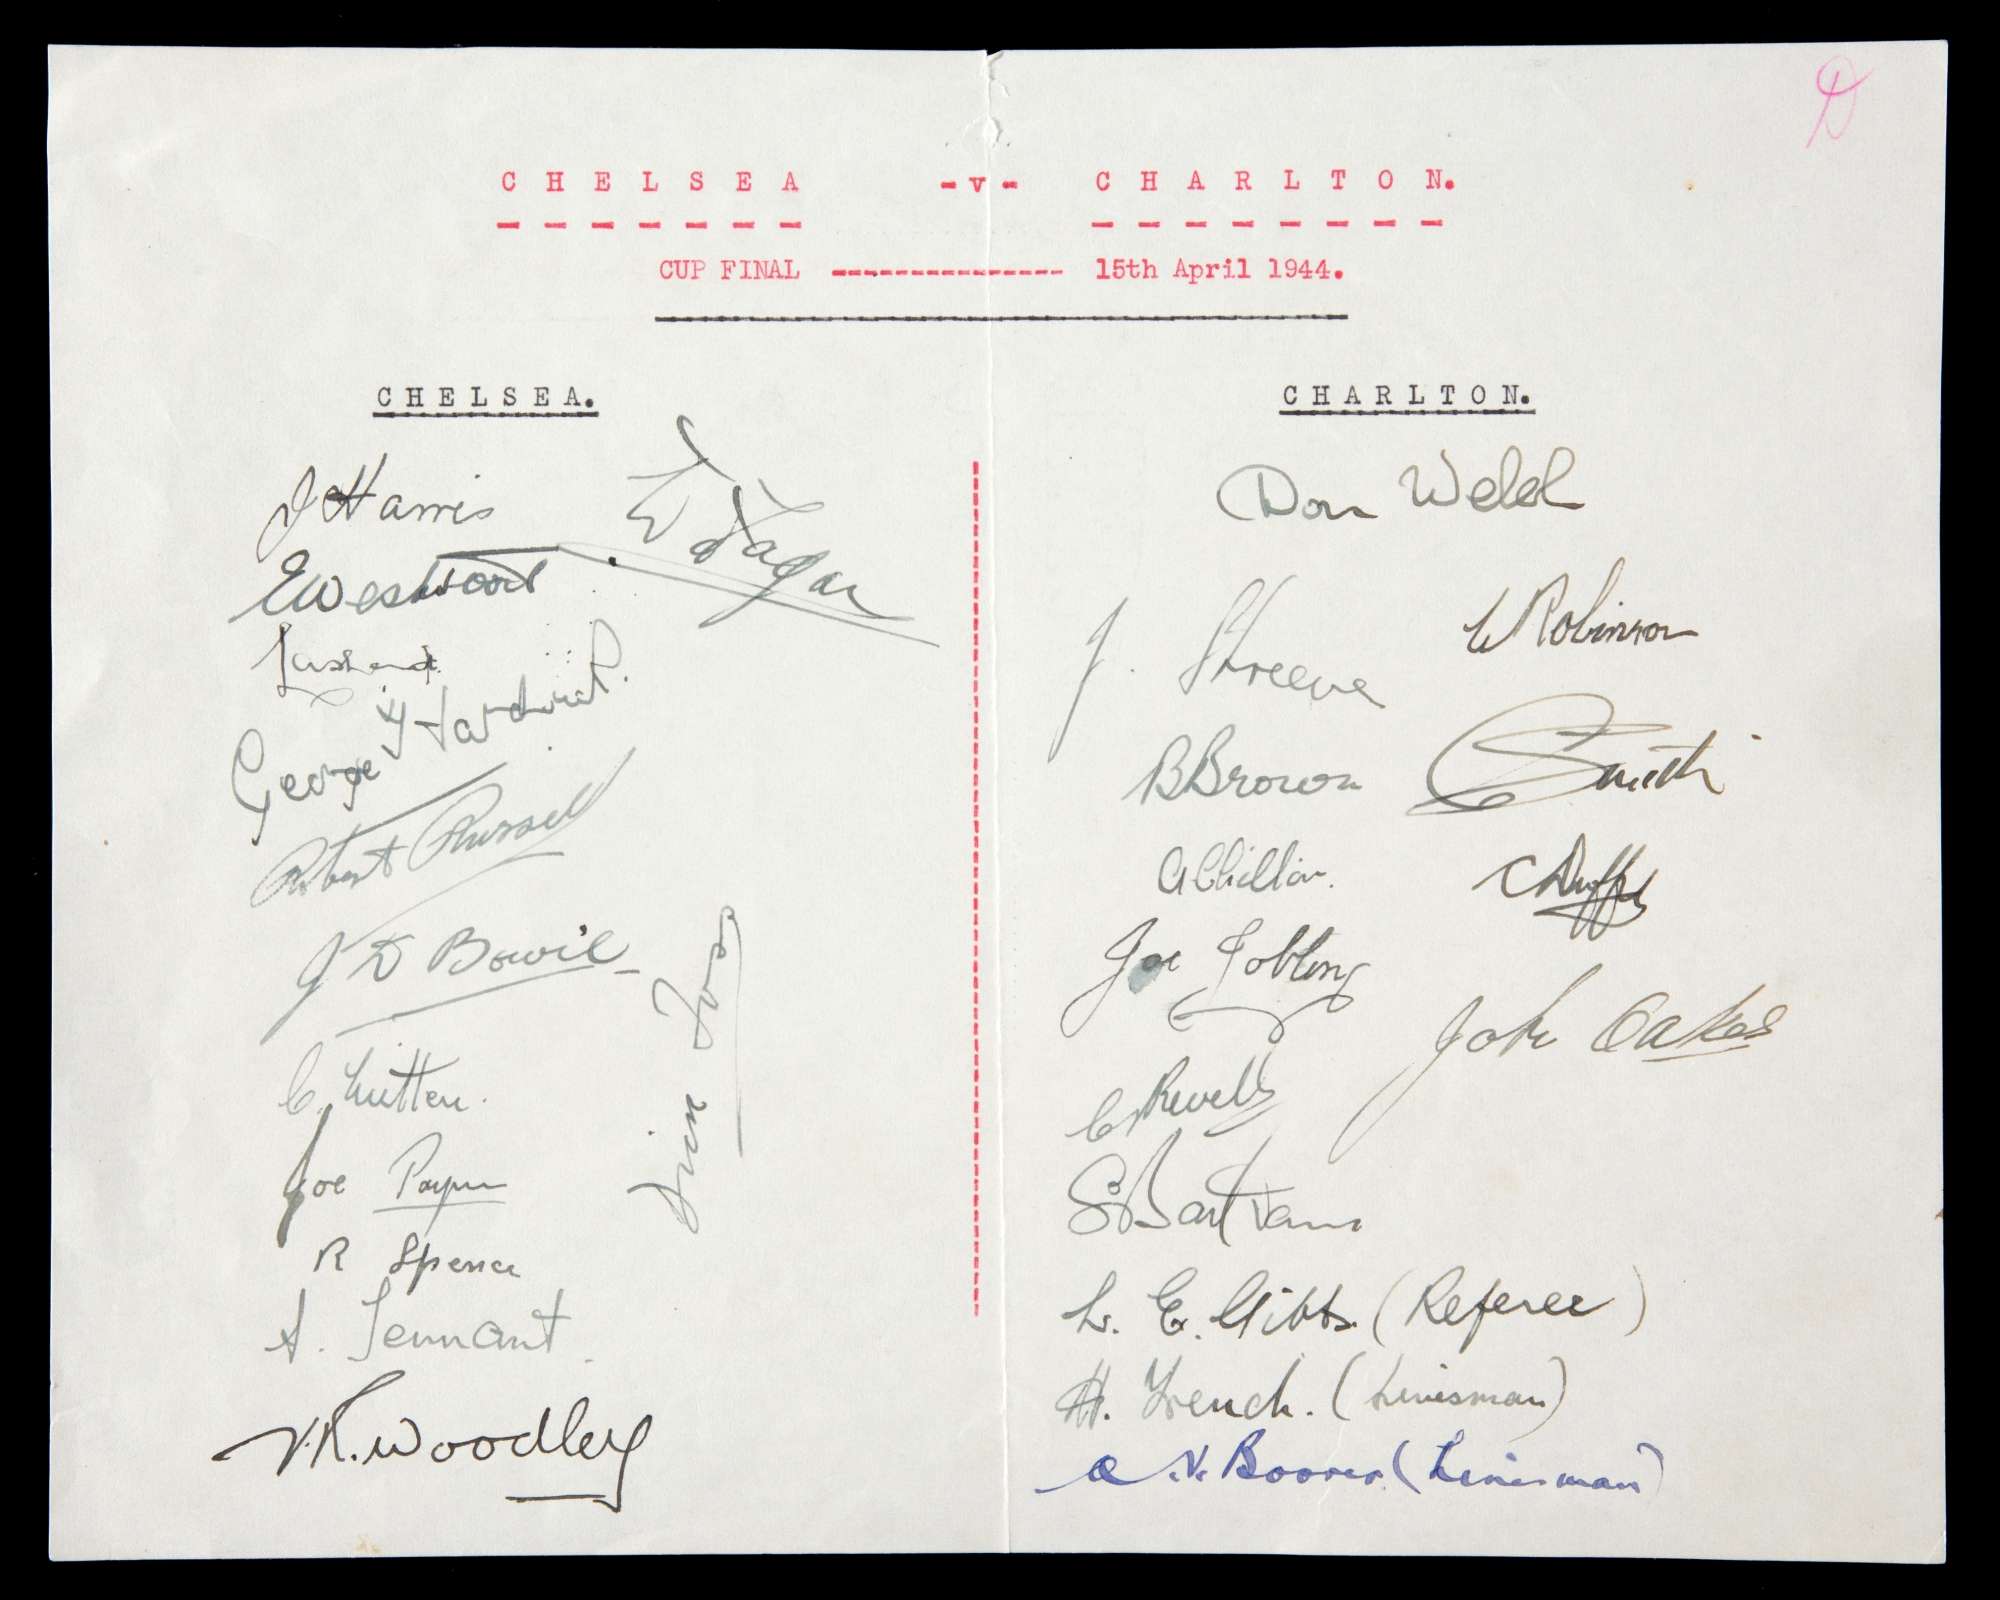 D
CHELSEA -v- CHARLTON.
CUP FINAL --------------- 15th April 1944.
CHELSEA.
J Harris
E Westwood
George F Hardwick.
Robert Russell
J D Bowie
C. Mitten.
Joe Payne
R Spence
A. Tennant.
V.R. Woodley
Jim Foss
CHARLTON.
Don Welsh
J. Shreeve
B Brown
A Chilton.
Joe Jobling
C Revell
S. Bartram
L. E. Gibbs. (Referee)
H. French. (Linesman)
A. N. Boorer. (Linesman)
W Robinson
Smith
C Duffy
John Oakes